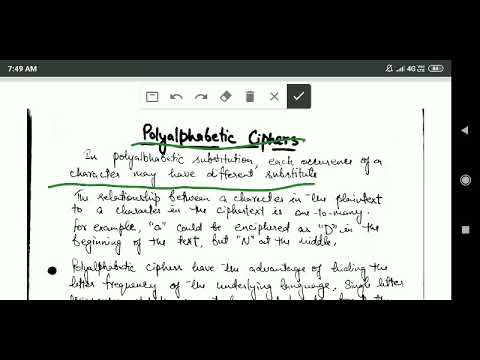 7:49 AM
4G
Polyalphabetic Ciphers
In polyalphabetic substitution, each occurrence of a
character may have different substitute
The relationship between a character in the plaintext
to a character in the ciphertext is one-to-many.
For example, "a" could be enciphered as "D" in the
beginning of the text, but "N" at the middle.
Polyalphabetic ciphers have the advantage of hiding the
letter frequency of the underlying language, Single letter